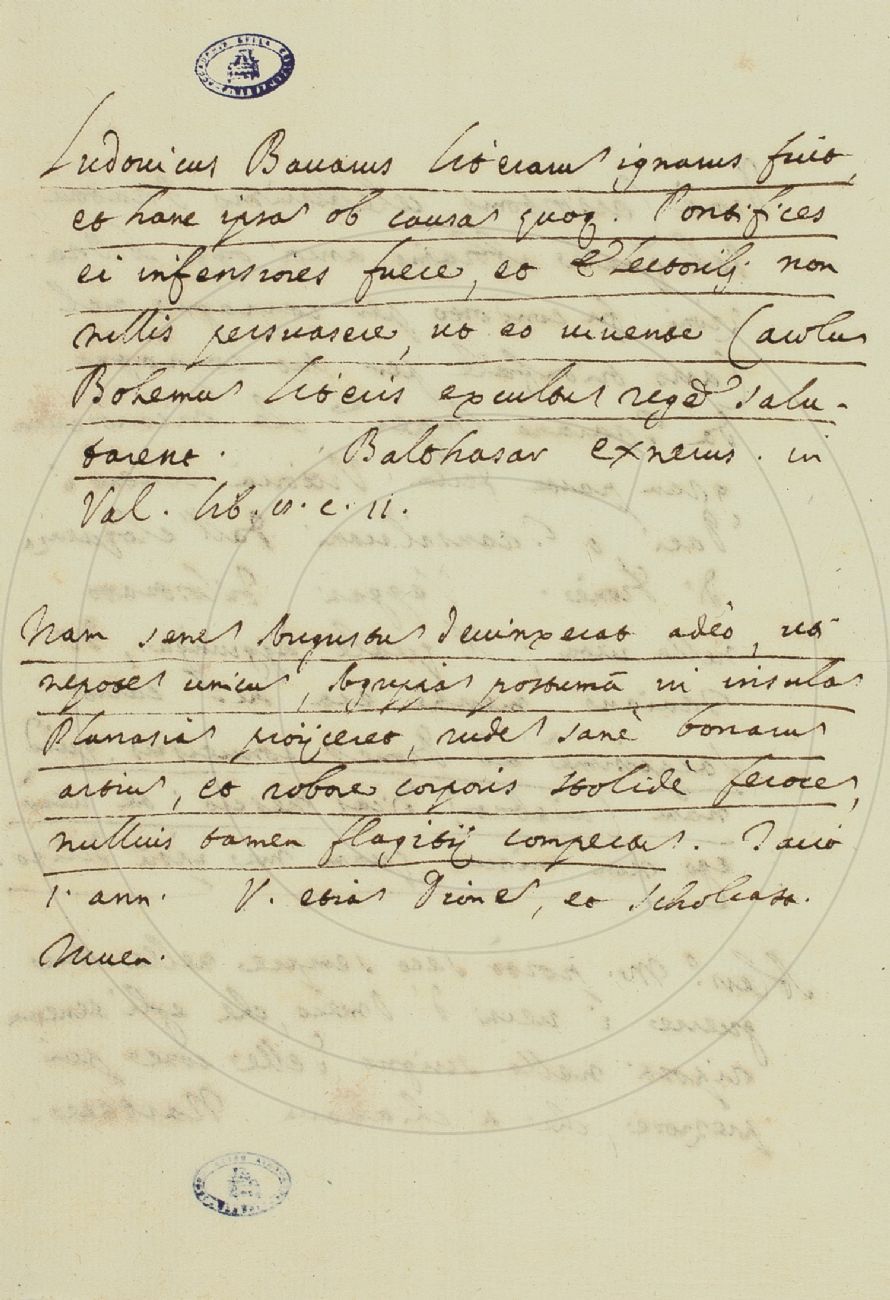 Ludovicus Bavarus literarũ ignarus fuit,
et hanc ipsã ob causã quoq. Pontifices
ei infensiores fuere, et Electorib; non
nullis persuasere, ut eo vivente Carolũ
Bohemũ literis excultũ regẽ salu-
tarent. Balthasar exnerus. in
Val. lib. c. 11.
Nam senẽ Augustũ devinxerat adeò, uti
nepotẽ unicũ, Agrippã postumũ in insulã
Planasiã proijceret, rudẽ sanè bonarũ
artiũ, et robore corporis stolidè ferocẽ,
nullius tamen flagitij compertũ. Tacit
1. ann. V. etiã Dionẽ, et scholiast.
Iuven.